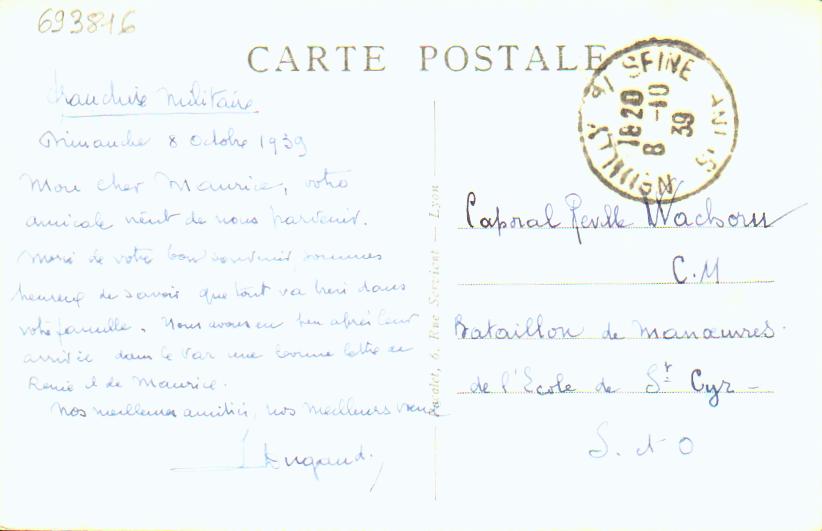 693816
CARTE POSTALE
Franchise Militaire
Dimanche 8 Octobre 1939
Mon cher Maurice, votre
amicale vient de nous parvenir.
Merci de votre bon souvenir, sommes
heureux de savoir que tout va bien dans
votre famille. Nous avons eu peu après leur
arrivée dans le Var une bonne lettre de
Renée et de Maurice.
Nos meilleures amitiés, nos meilleurs vœux
NEUILLY S/ SEINE
1820
8 -10
39
6, Rue Servient — Lyon
Caporal
C.M
Bataillon de Manœuvres.
de l'Ecole de St Cyr -
S. et O